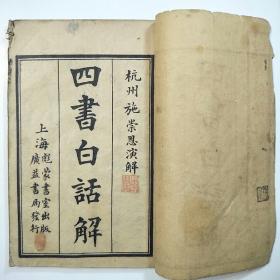 杭州施崇恩演解
四書白話解
上海彪蒙書室出版
廣益書局發行